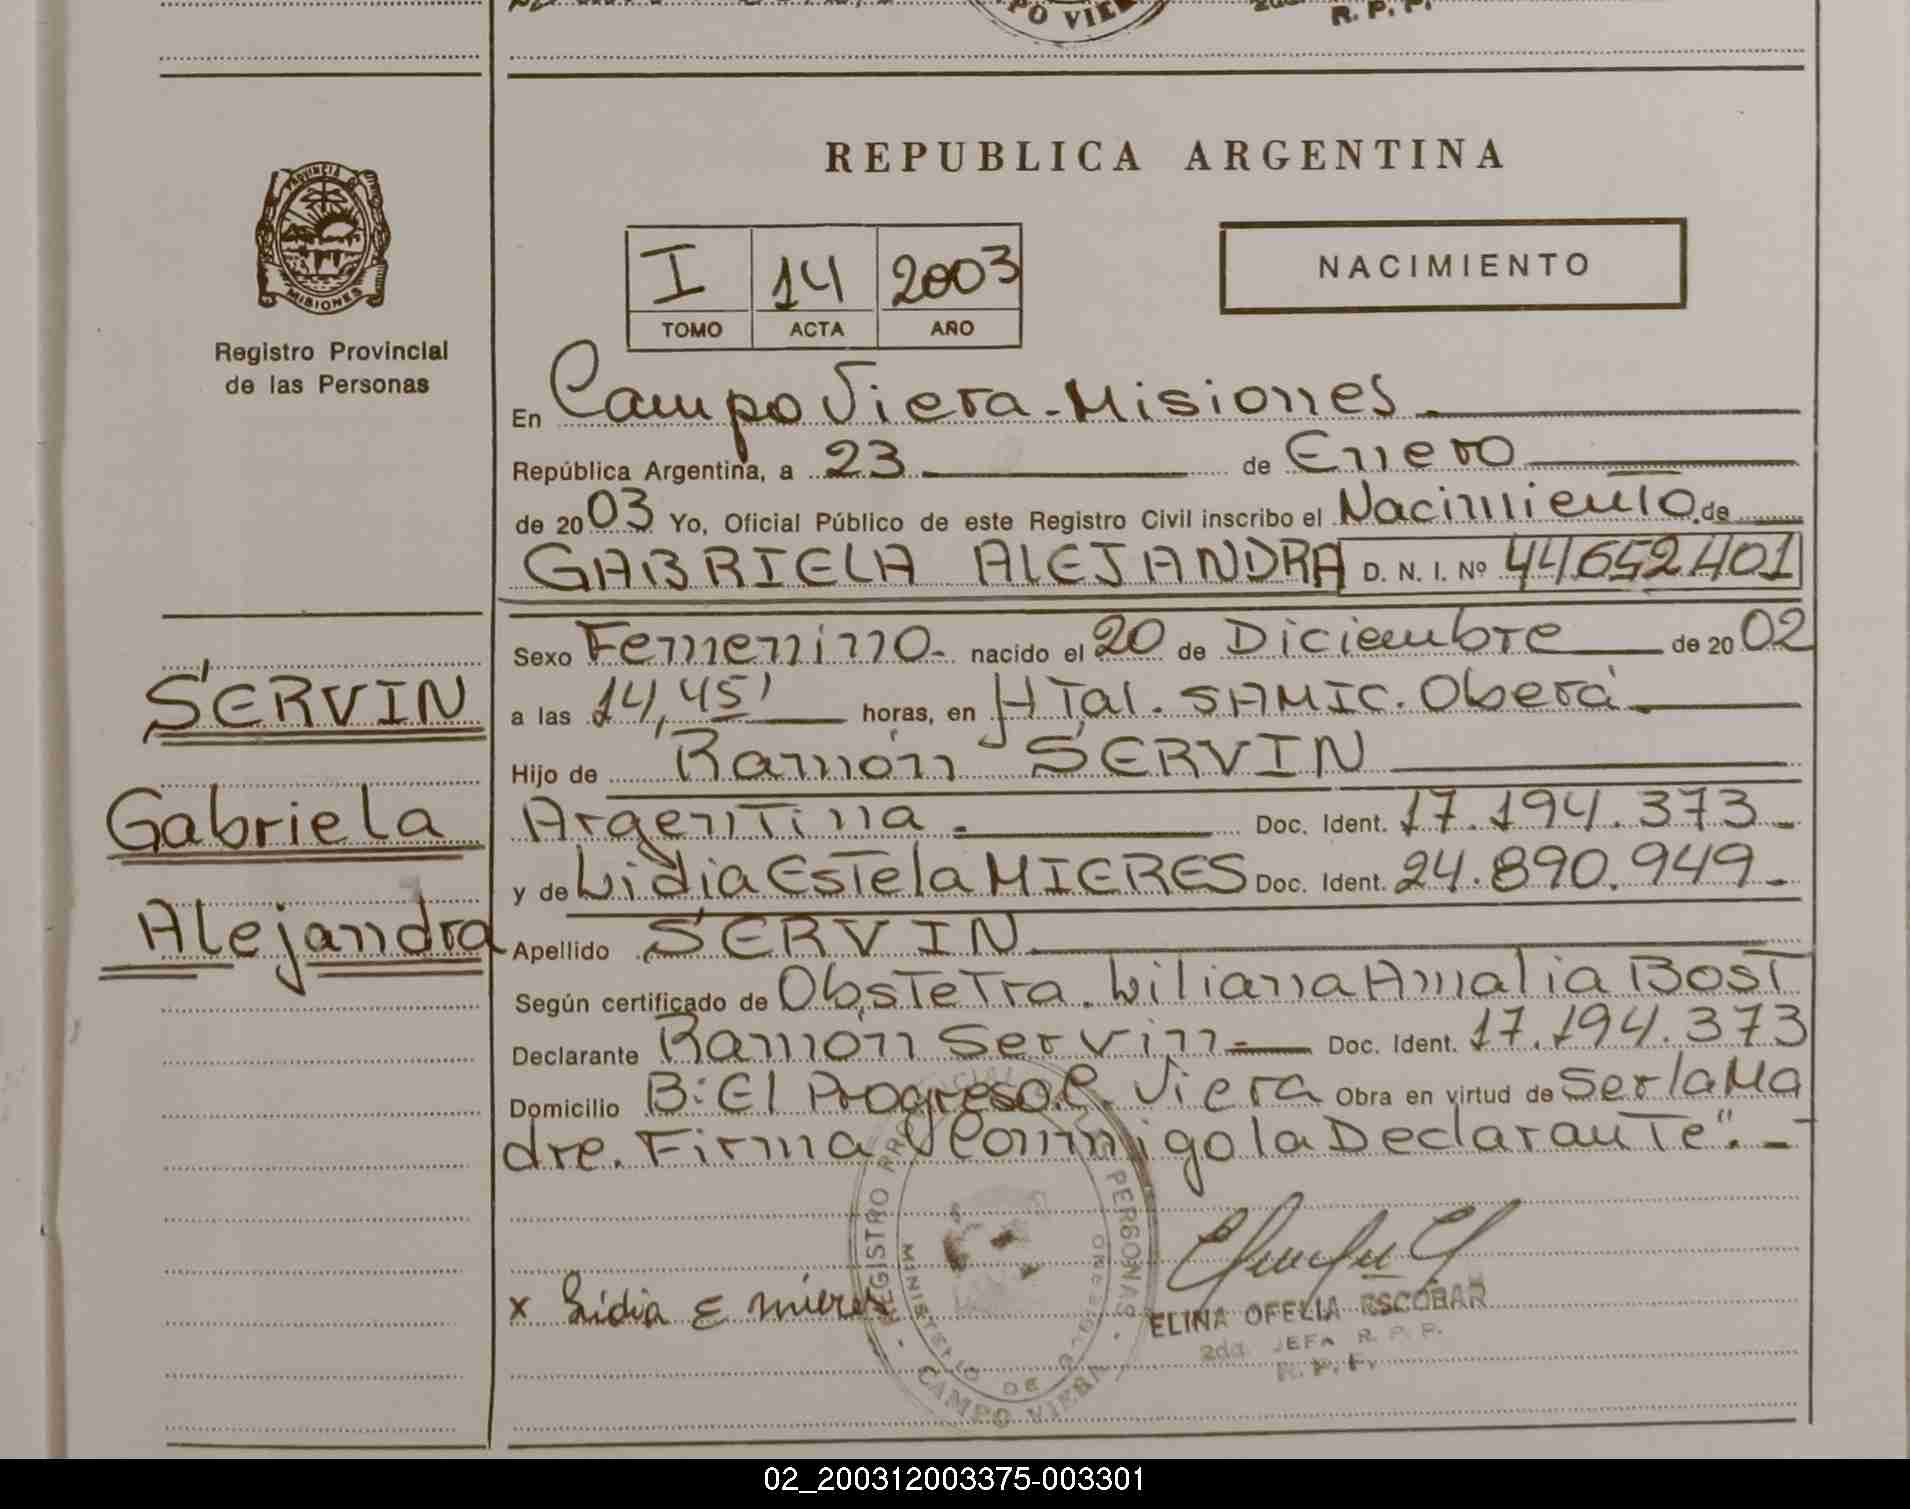 PO VIE
R. P. P.
PROVINCIA DE
MISIONES
Registro Provincial
de las Personas
REPUBLICA ARGENTINA
I 14 2003
TOMO ACTA AÑO
NACIMIENTO
En Campo Viera-Misiones
República Argentina, a 23 de Enero
de 2003 Yo, Oficial Público de este Registro Civil inscribo el Nacimiento de
GABRIELA ALEJANDRA D. N. I. Nº 44.652.401
Sexo Femenino- nacido el 20 de Diciembre de 2002
a las 14,45' horas, en HTal. SAMIC. Oberá
Hijo de Ramón SERVIN
Argentina Doc. Ident. 17.194.373-
y de Lidia Estela MIERES Doc. Ident. 24.890.949-
Apellido SERVIN
Según certificado de Obstetra. Liliana Amalia Bost
Declarante Ramón Servin Doc. Ident. 17.194.373
Domicilio B: El Progreso C. Viera Obra en virtud de Ser la Ma
dre. Firma Conmigo la Declarante".-
SERVIN
Gabriela
Alejandra
x Lidia E mieres
REGISTRO PERSONAS
MINISTERIO DE GOBIERNO
CAMPO VIERA
ELINA OFELIA ESCOBAR
2da. JEFA R. P. P.
R. P. P.
02_200312003375-003301